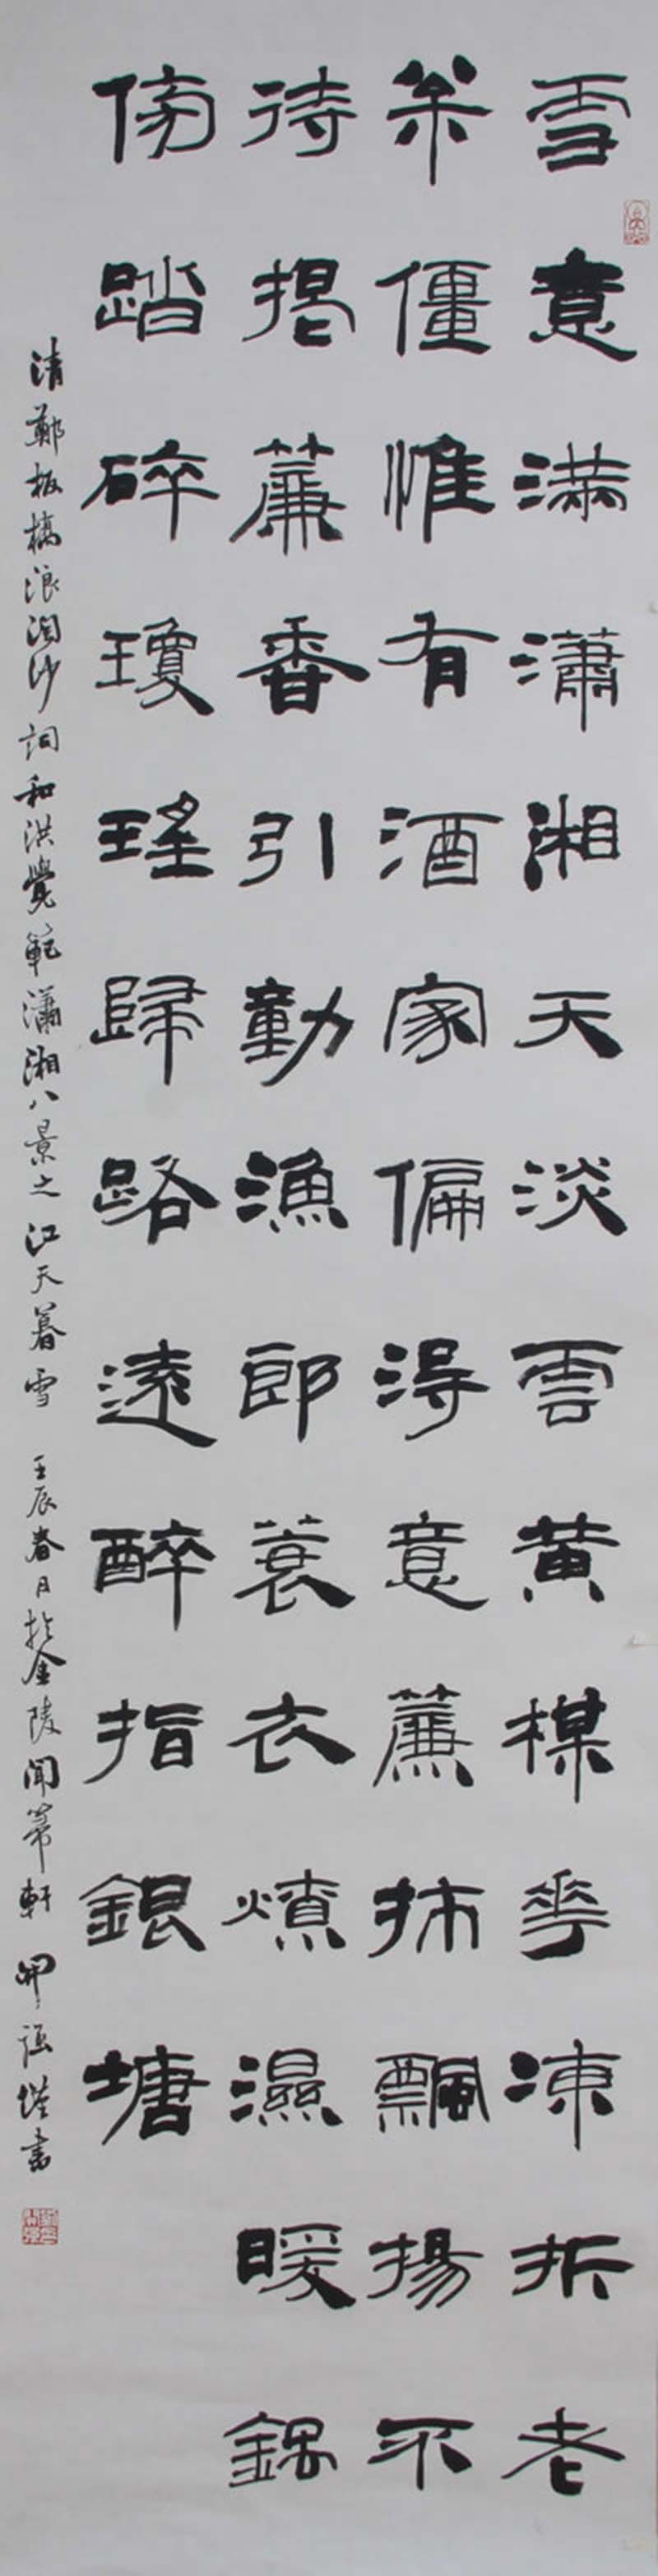 雪意滿瀟湘天淡雲黃楳花凍折老
僵惟有酒家偏得意簾抪飄揚不
待揭簾香引動漁郎蓑衣燎濕暖鍋
傍踏碎瓊瑤歸路遠醉指銀塘
清鄭板橋浪淘沙詞和洪覺範瀟湘八景之江天暮雪 壬辰春月於金陵聞
軒
書